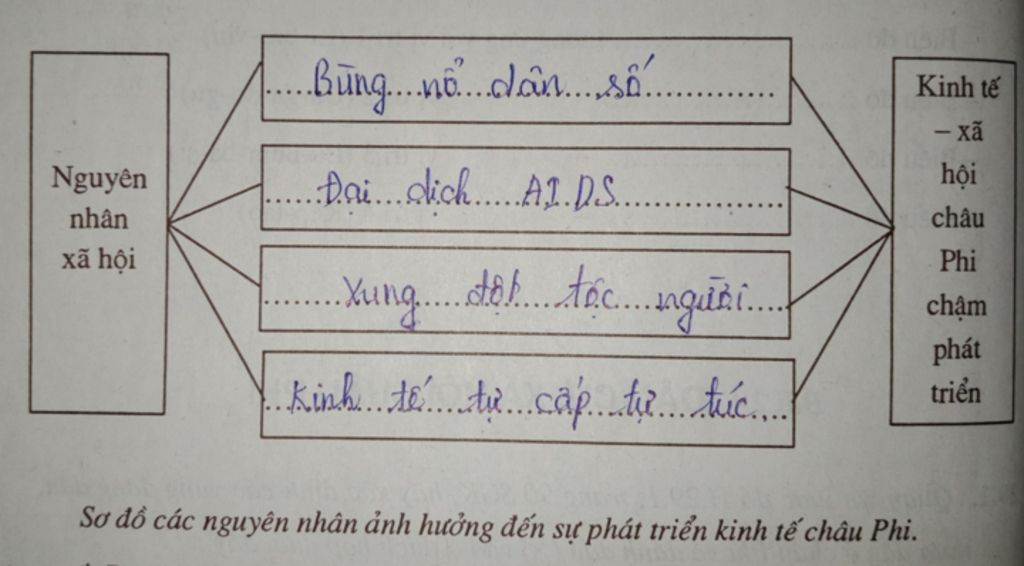 Nguyên
nhân
xã hội
Bùng nổ dân số
Đại dịch AIDS
Xung đột tộc người
Kinh tế tự cấp tự túc
Kinh tế
– xã
hội
châu
Phi
chậm
phát
triển
Sơ đồ các nguyên nhân ảnh hưởng đến sự phát triển kinh tế châu Phi.